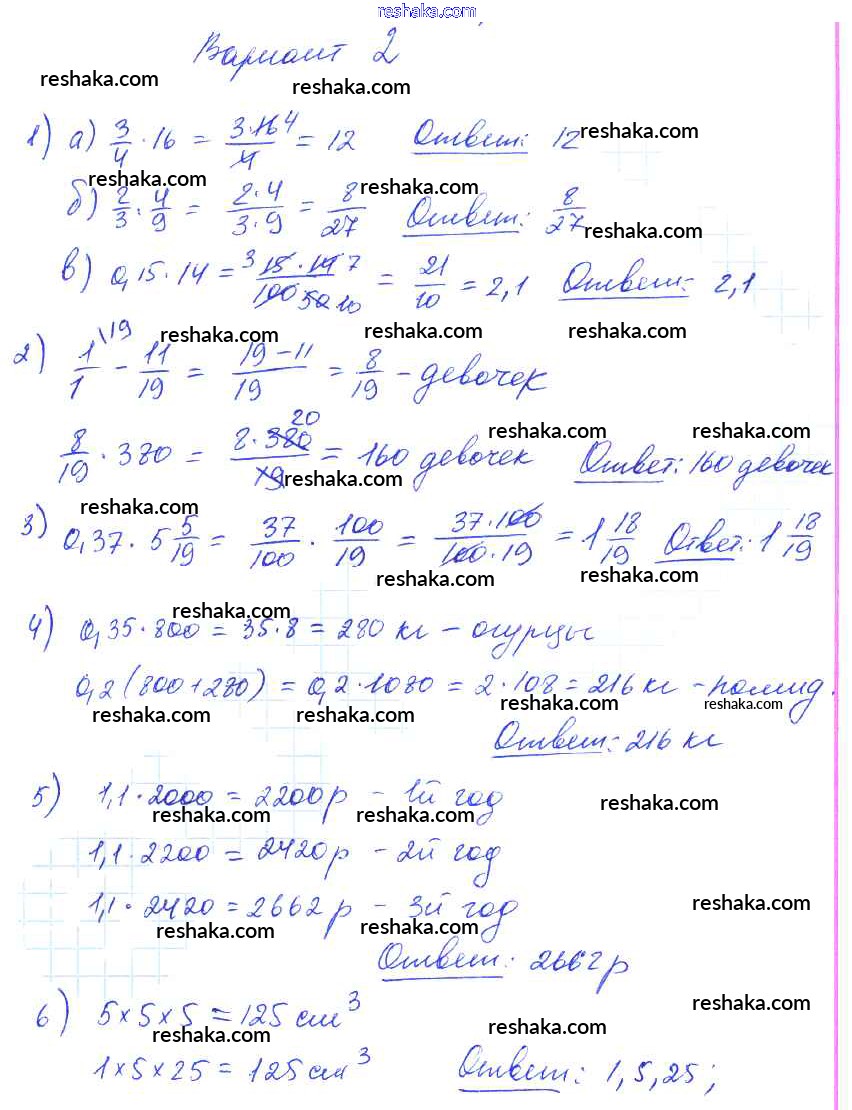 reshaka.com
Вариант 2
reshaka.com reshaka.com
1) а) 3/4 · 16 = 3·16 4/4 = 12 Ответ: 12 reshaka.com
reshaka.com reshaka.com
б) 2/3 · 4/9 = 2·4/3·9 = 8/27 Ответ: 8/27
reshaka.com
в) 0,15·14 = 3 15·14 7/100 50 10 = 21/10 = 2,1 Ответ: 2,1
reshaka.com reshaka.com reshaka.com
2) 1/1 \19 - 11/19 = 19-11/19 = 8/19 - девочек
reshaka.com reshaka.com
8/19 · 380 = 8·380 20/19 = 160 девочек Ответ: 160 девочек
reshaka.com
reshaka.com
3) 0,37 · 5 5/19 = 37/100 · 100/19 = 37·100/100·19 = 1 18/19 Ответ: 1 18/19
reshaka.com reshaka.com
reshaka.com
4) 0,35·800 = 35·8 = 280 кг - огурцы
0,2(800+280) = 0,2·1080 = 2·108 = 216 кг - помид.
reshaka.com reshaka.com reshaka.com reshaka.com
Ответ: 216 кг
5) 1,1·2000 = 2200р - 1й год
reshaka.com reshaka.com reshaka.com
1,1·2200 = 2420р - 2й год
1,1·2420 = 2662р - 3й год
reshaka.com
reshaka.com reshaka.com
Ответ: 2662р
6) 5×5×5 = 125 см³
reshaka.com
reshaka.com reshaka.com
1×5×25 = 125 см³ Ответ: 1,5,25;
reshaka.com reshaka.com